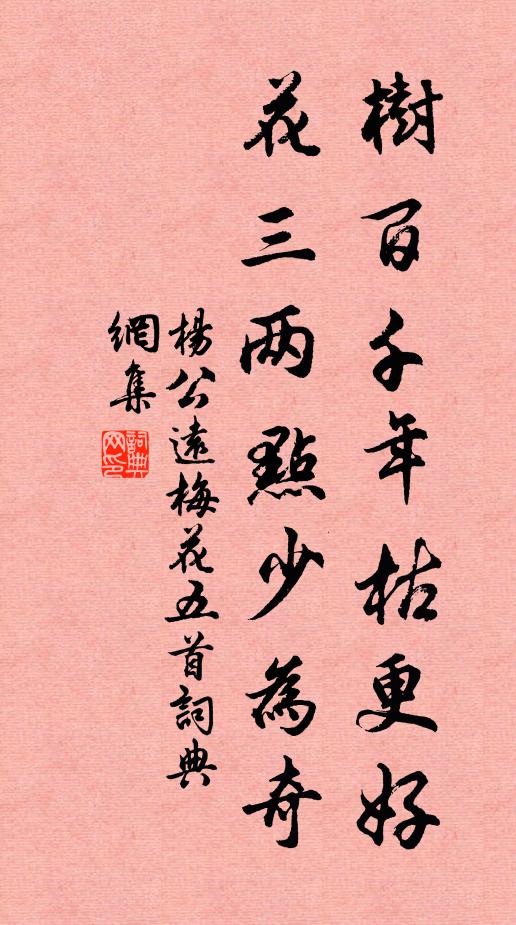 樹百千年枯更好
花三两點少為奇
楊公遠梅花五首詞典
網集
詞典网印